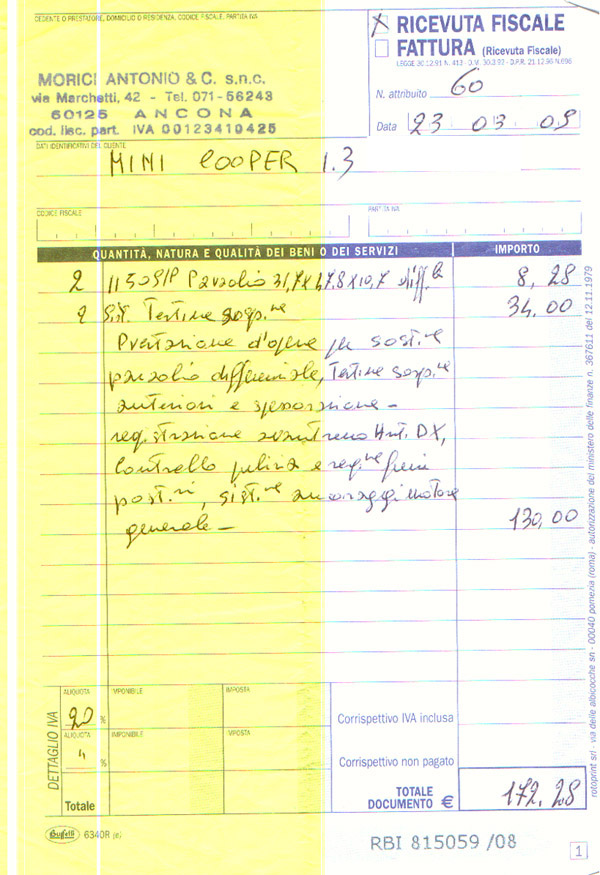 CEDENTE O PRESTATORE, DOMICILIO O RESIDENZA, CODICE FISCALE, PARTITA IVA
X RICEVUTA FISCALE
FATTURA (Ricevuta Fiscale)
LEGGE 30.12.91 N. 413 - D.M. 30.3.92 - D.P.R. 21.12.96 N.696
MORICI ANTONIO & C. s.n.c.
via Marchetti, 42 - Tel. 071-56243
60125 ANCONA
cod. fisc. part. IVA 00123410425
N. attribuito 60
Data 23 03 09
DATI IDENTIFICATIVI DEL CLIENTE
MINI COOPER 1.3
CODICE FISCALE
PARTITA IVA
QUANTITÀ, NATURA E QUALITÀ DEI BENI O DEI SERVIZI IMPORTO
2 Paraolio 31,7x47,8x10,7 diff.le 8,28
2 Testine sosp.ne 34,00
Prestazione d'opera per sost.ne
paraolio differenziale, testine sosp.ne
anteriori e
registrazione avantreno Ant. DX,
controllo pulizia e reg.ne freni
post.ri, sist.ne ancoraggi motore
generale - 130,00
DETTAGLIO IVA
ALIQUOTA IMPONIBILE IMPOSTA
20 %
Corrispettivo IVA inclusa
ALIQUOTA IMPONIBILE IMPOSTA
%
Corrispettivo non pagato
Totale
TOTALE DOCUMENTO € 172,28
Buffetti 6340R (e)
RBI 815059 /08
1
rotoprint srl - via delle albicocche sn - 00040 pomezia (roma) - autorizzazione del ministero delle finanze n. 367611 del 12.11.1979